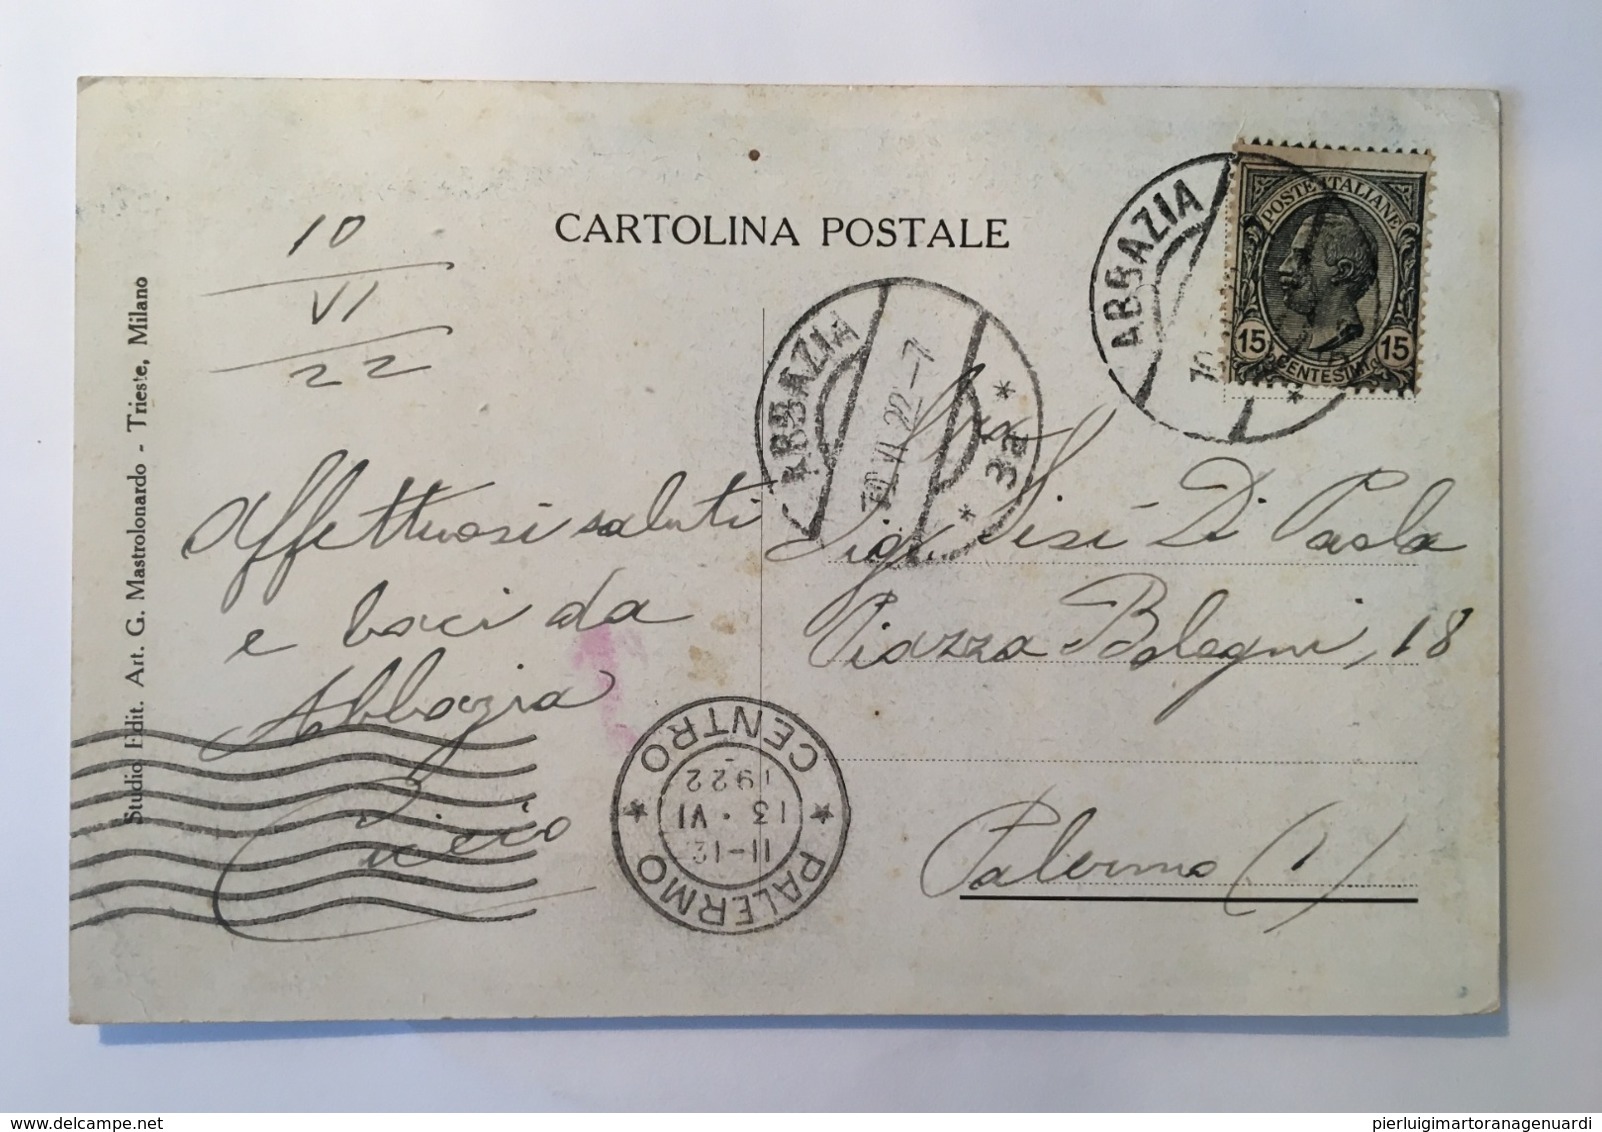 CARTOLINA POSTALE
Studio Edit. Art. G. Mastrolonardo - Trieste, Milano
10
VI
22
Affettuosi saluti
e baci da
Abbazia
Ciccio
ABBAZIA
10 VI 22-7
* 3a *
ABBAZIA
10
*
POSTE ITALIANE
15 15
CENTESIMI
Sig.na Sisi Di Paola
Piazza Bologni, 18
Palermo (1)
PALERMO
11-12
13 · VI
1922
CENTRO
delcampe.net
pierluigimartoranagenuardi